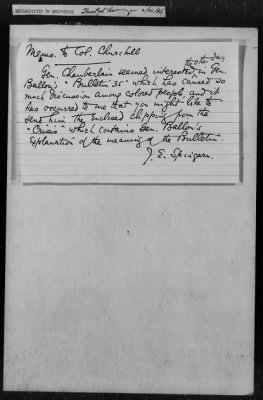 Memo. to Col. Churchill
Gen. Chamberlain seemed interested the other day in Gen.
Ballou's "Bulletin 35" which has caused so
much discussion among colored people, and it
has occurred to me that you might like to
send him the enclosed clipping from the
"Crisis" which contains Gen. Ballou's
explanation of the meaning of the Bulletin.
J. E. Spingarn.